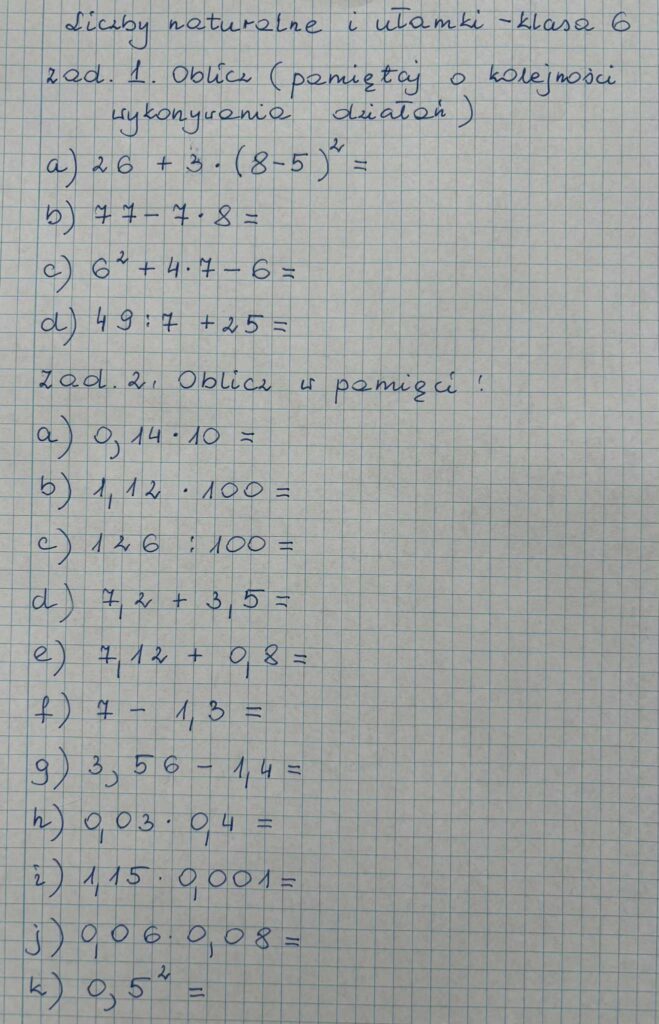 Liczby naturalne i ułamki - klasa 6
Zad. 1. Oblicz (pamiętaj o kolejności
wykonywania działań)
a) 26 + 3 · (8-5)² =
b) 77 - 7 · 8 =
c) 6² + 4 · 7 - 6 =
d) 49 : 7 + 25 =
Zad. 2. Oblicz w pamięci:
a) 0,14 · 10 =
b) 1,12 · 100 =
c) 126 : 100 =
d) 7,2 + 3,5 =
e) 7,12 + 0,8 =
f) 7 - 1,3 =
g) 3,56 - 1,4 =
h) 0,03 · 0,4 =
i) 1,15 · 0,001 =
j) 0,06 · 0,08 =
k) 0,5² =